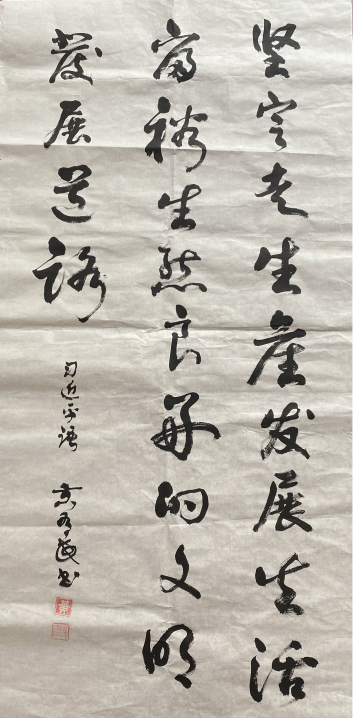 坚定走生產发展生活
富裕生态良好的文明
發展道路
习近平语 书